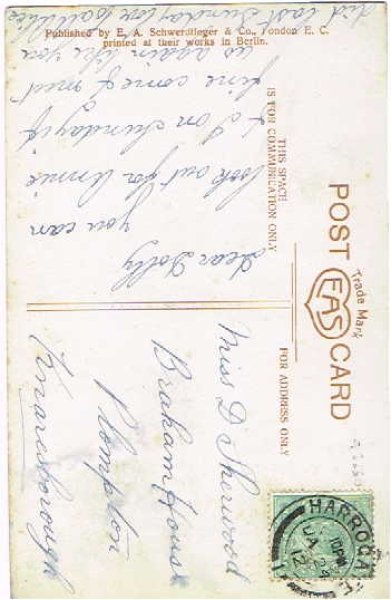 Published by E. A. Schwerdtfeger & Co., London E. C.
printed at their works in Berlin.
POST CARD
Trade Mark
EAS
THIS SPACE
IS FOR COMMUNICATION ONLY
FOR ADDRESS ONLY
Dear Dolly
you can
look out for Annie
& I on Sunday if
fine come & meet
us again like you
did last Sunday love to all
Miss D Sherwood
Braham House
Plompton
Knaresborough
HARROGATE
10 PM
JA
12